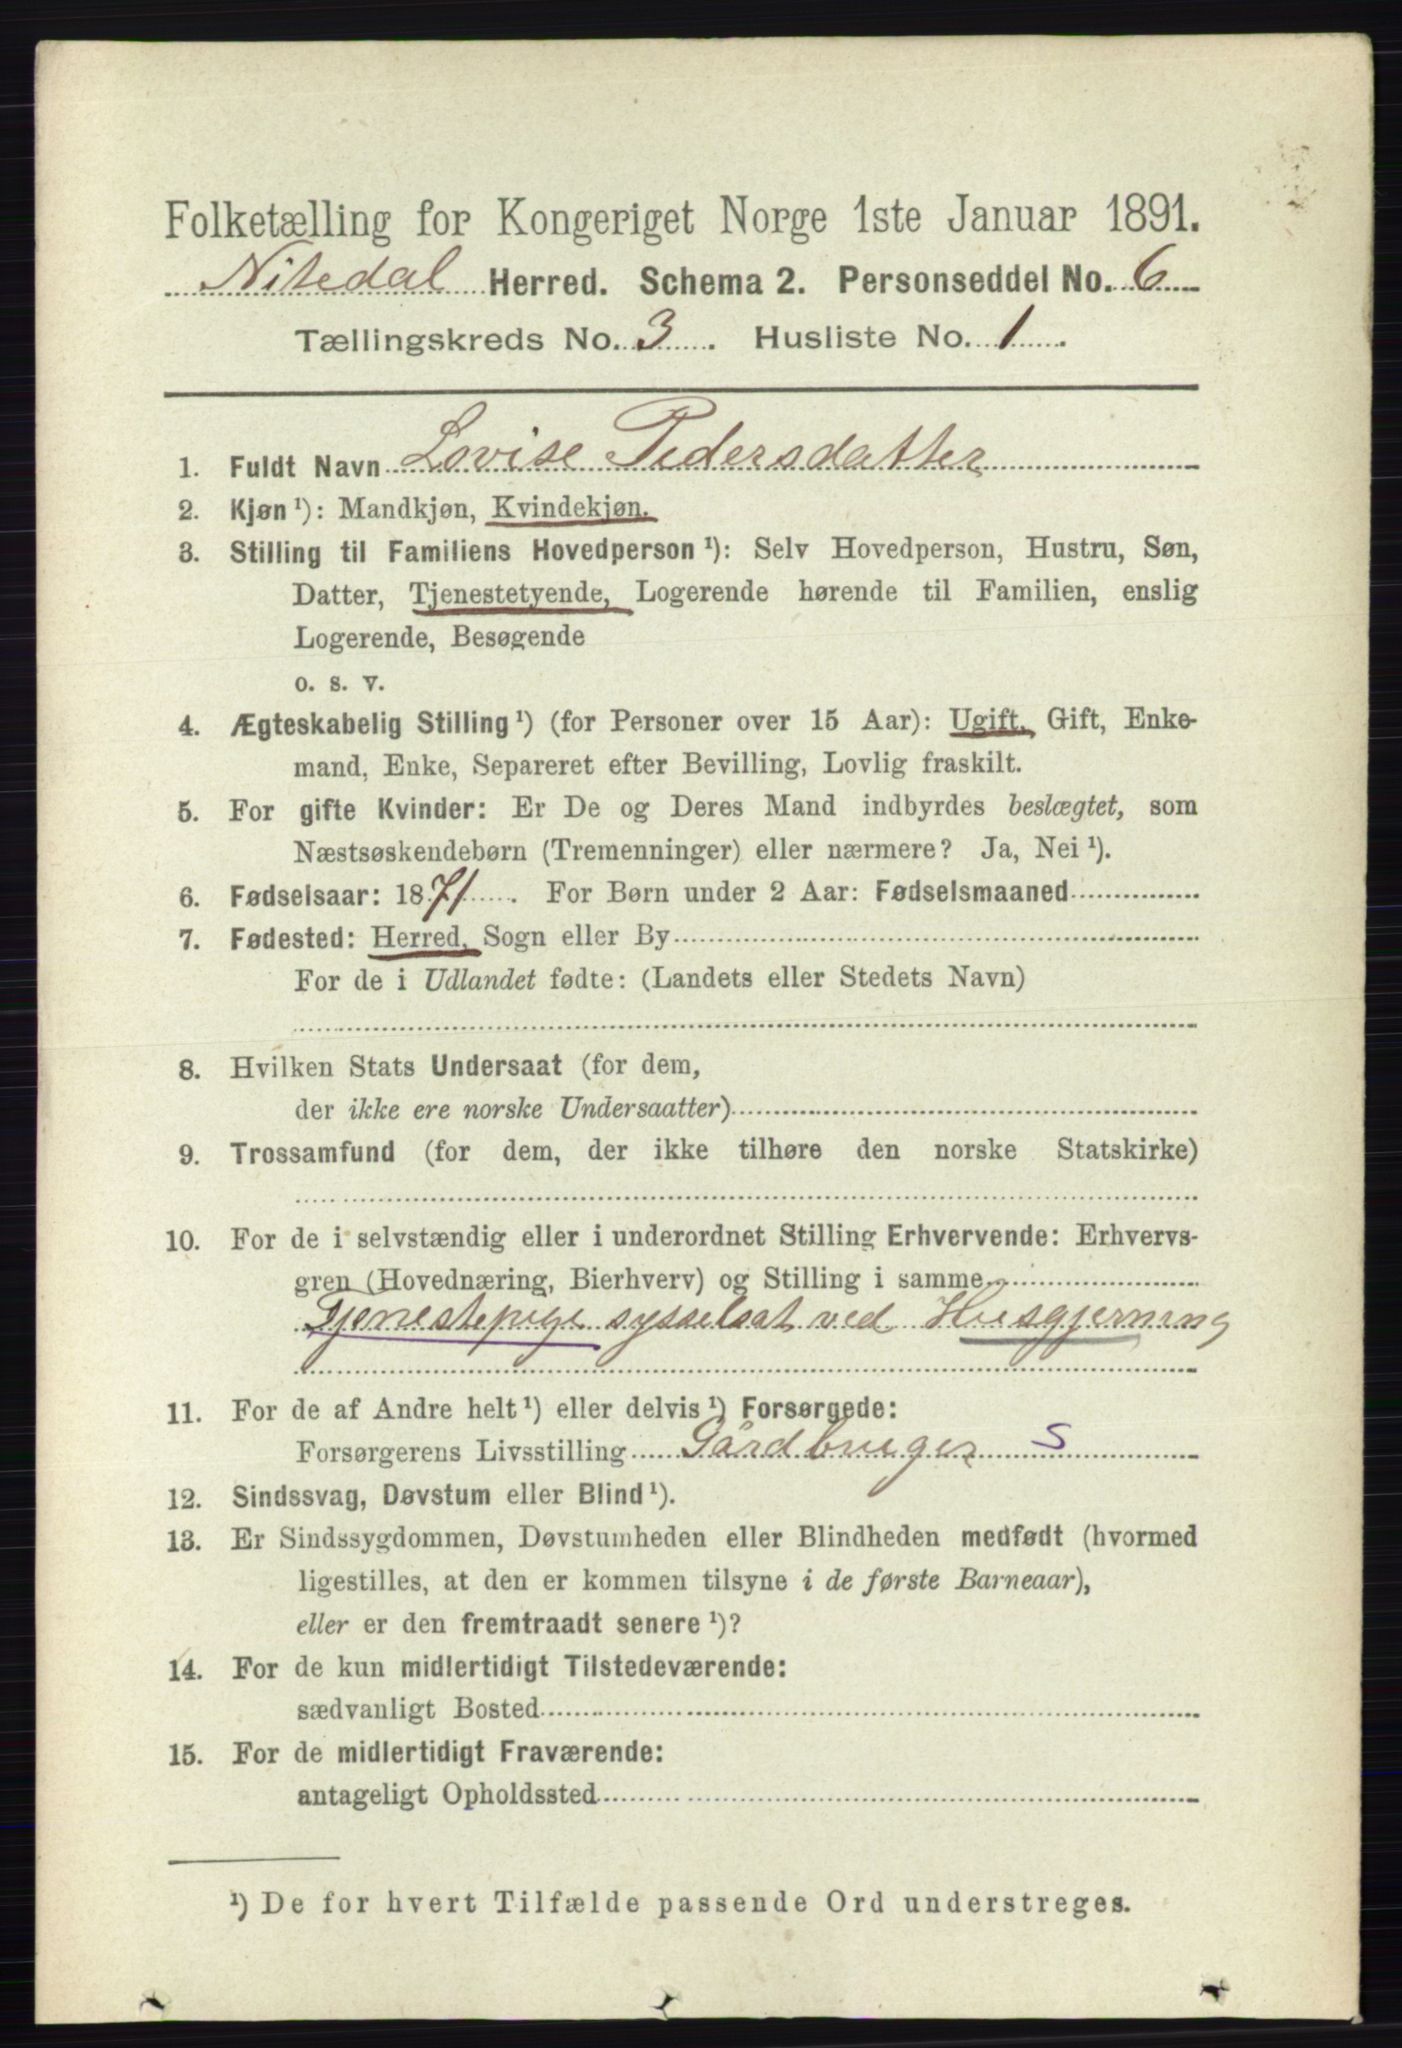 Folketælling for Kongeriget Norge 1ste Januar 1891.
Nitedal Herred. Schema 2. Personseddel No. 6
Tællingskreds No. 3. Husliste No. 1.
1. Fuldt Navn Lovise Pedersdatter
2. Kjøn ¹): Mandkjøn, Kvindekjøn.
3. Stilling til Familiens Hovedperson ¹): Selv Hovedperson, Hustru, Søn,
Datter, Tjenestetyende, Logerende hørende til Familien, enslig
Logerende, Besøgende
o. s. v.
4. Ægteskabelig Stilling ¹) (for Personer over 15 Aar): Ugift, Gift, Enke-
mand, Enke, Separeret efter Bevilling, Lovlig fraskilt.
5. For gifte Kvinder: Er De og Deres Mand indbyrdes beslægtet, som
Næstsøskendebørn (Tremenninger) eller nærmere? Ja, Nei ¹).
6. Fødselsaar: 1871. For Børn under 2 Aar: Fødselsmaaned
7. Fødested: Herred, Sogn eller By
For de i Udlandet fødte: (Landets eller Stedets Navn)
8. Hvilken Stats Undersaat (for dem,
der ikke ere norske Undersaatter)
9. Trossamfund (for dem, der ikke tilhøre den norske Statskirke)
10. For de i selvstændig eller i underordnet Stilling Erhvervende: Erhvervs-
gren (Hovednæring, Bierhverv) og Stilling i samme
Tjenestepige sysselsat ved Husgjerning
11. For de af Andre helt ¹) eller delvis ¹) Forsørgede:
Forsørgerens Livsstilling Gårdbruger S
12. Sindssvag, Døvstum eller Blind ¹).
13. Er Sindssygdommen, Døvstumheden eller Blindheden medfødt (hvormed
ligestilles, at den er kommen tilsyne i de første Barneaar),
eller er den fremtraadt senere ¹)?
14. For de kun midlertidigt Tilstedeværende:
sædvanligt Bosted
15. For de midlertidigt Fraværende:
antageligt Opholdssted
¹) De for hvert Tilfælde passende Ord understreges.